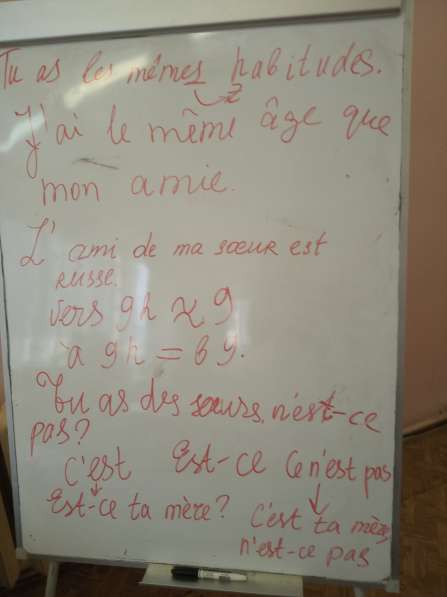 Tu as les mêmes habitudes.
z
J'ai le même âge que
mon amie.
L'ami de ma sœur est
russe.
vers 9h ≈ 9
à 9h = в 9.
Tu as des sœurs, n'est-ce
pas?
C'est Est-ce Ce n'est pas
Est-ce ta mère? C'est ta mère,
n'est-ce pas